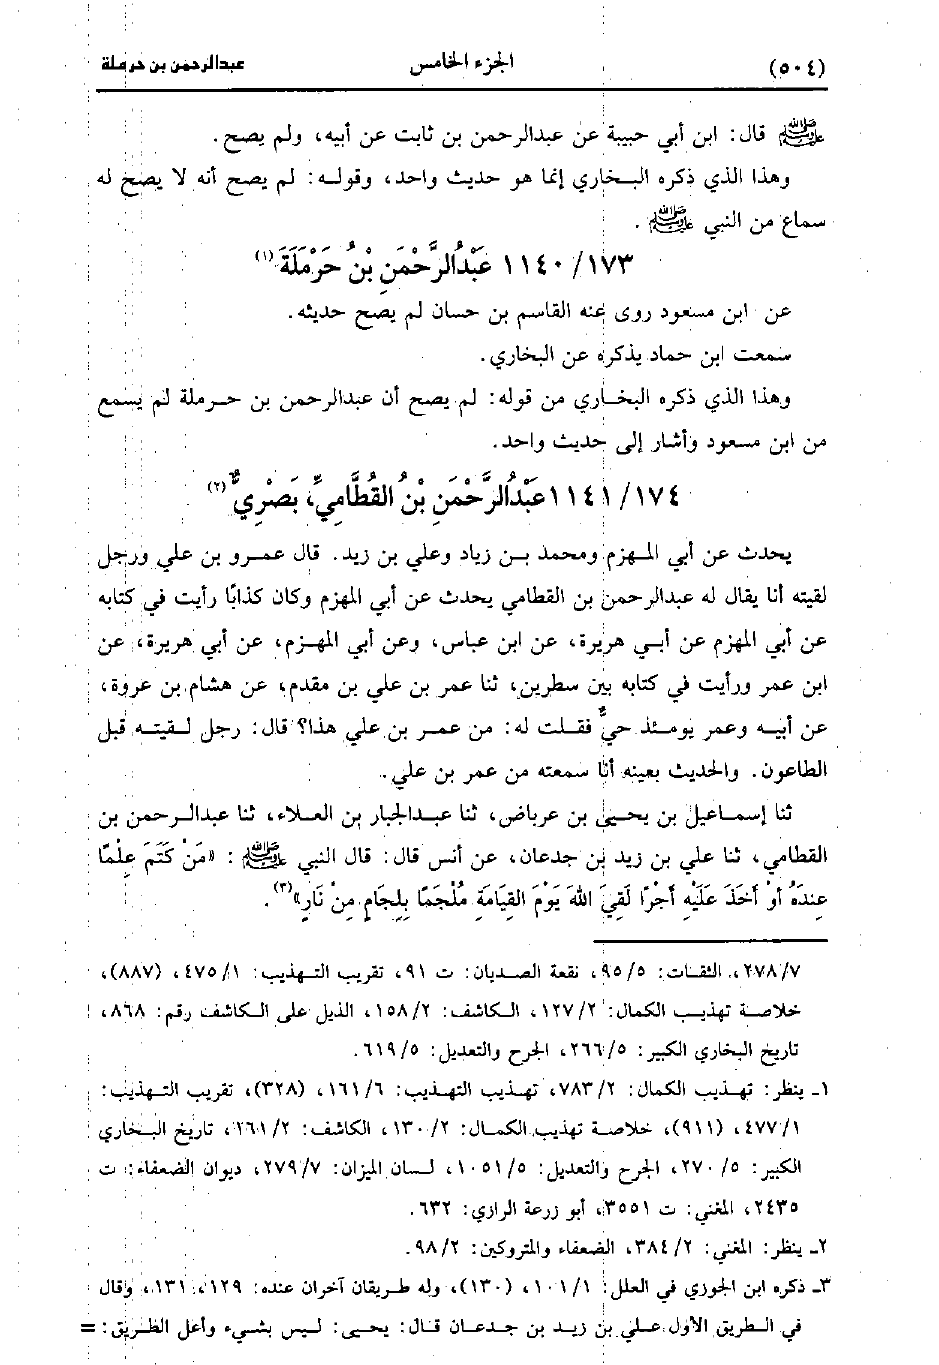 (٥٠٤) الجزء الخامس عبدالرحمن بن حرملة
ﷺ قال: ابن أبي حبيبة عن عبدالرحمن بن ثابت عن أبيه، ولم يصح.
وهذا الذي ذكره البخاري إنما هو حديث واحد، وقوله: لم يصح أنه لا يصح له
سماع من النبي ﷺ.
١١٤٠/١٧٣ عَبْدُالرَّحْمَنِ بْنُ حَرْمَلَةَ(١)
عن ابن مسعود روى عنه القاسم بن حسان لم يصح حديثه.
سمعت ابن حماد يذكره عن البخاري.
وهذا الذي ذكره البخاري من قوله: لم يصح أن عبدالرحمن بن حرملة لم يسمع
من ابن مسعود وأشار إلى حديث واحد.
١١٤١/١٧٤ عَبْدُالرَّحْمَنِ بْنُ القُطَّامِيِّ، بَصْرِيٌّ(٢)
يحدث عن أبي المهزم ومحمد بن زياد وعلي بن زيد. قال عمرو بن علي ورجل
لقيته أنا يقال له عبدالرحمن بن القطامي يحدث عن أبي المهزم وكان كذابًا رأيت في كتابه
عن أبي المهزم عن أبي هريرة، عن ابن عباس، وعن أبي المهزم، عن أبي هريرة، عن
ابن عمر ورأيت في كتابه بين سطرين، ثنا عمر بن علي بن مقدم، عن هشام بن عروة،
عن أبيه وعمر يومئذ حيٌّ فقلت له: من عمر بن علي هذا؟ قال: رجل لقيته قبل
الطاعون. والحديث بعينه أنا سمعته من عمر بن علي.
ثنا إسماعيل بن يحيى بن عرباض، ثنا عبدالجبار بن العلاء، ثنا عبدالرحمن بن
القطامي، ثنا علي بن زيد بن جدعان، عن أنس قال: قال النبي ﷺ: «مَنْ كَتَمَ عِلْمًا
عِندَهُ أَوْ أَخَذَ عَلَيْهِ أَجْرًا لَقِيَ اللهَ يَوْمَ القِيَامَةِ مُلْجَمًا بِلِجَامٍ مِنْ نَارٍ»(٣).
٢٧٨/٧، الثقات: ٩٥/٥، نقعة الصديان: ت ٩١، تقريب التهذيب: ٤٧٥/١، (٨٨٧)،
خلاصة تهذيب الكمال: ١٢٧/٢، الكاشف: ١٥٨/٢، الذيل على الكاشف رقم: ٨٦٨،
تاريخ البخاري الكبير: ٢٦٦/٥، الجرح والتعديل: ٦١٩/٥.
١ـ ينظر: تهذيب الكمال: ٧٨٣/٢، تهذيب التهذيب: ١٦١/٦، (٣٢٨)، تقريب التهذيب:
٤٧٧/١، (٩١١)، خلاصة تهذيب الكمال: ١٣٠/٢، الكاشف: ١٦١/٢، تاريخ البخاري
الكبير: ٢٧٠/٥، الجرح والتعديل: ١٠٥١/٥، لسان الميزان: ٢٧٩/٧، ديوان الضعفاء: ت
٢٤٣٥، المغني: ت ٣٥٥١، أبو زرعة الرازي: ٦٣٢.
٢ـ ينظر: المغني: ٣٨٤/٢، الضعفاء والمتروكين: ٩٨/٢.
٣ـ ذكره ابن الجوزي في العلل: ١٠١/١، (١٣٠)، وله طريقان آخران عنده: ١٢٩، ١٣١، وقال
في الطريق الأول علي بن زيد بن جدعان قال: يحيى: ليس بشيء وأعل الطريق: =